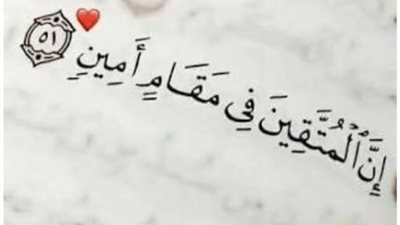 إِنَّ ٱلْمُتَّقِينَ فِي مَقَامٍ أَمِينٍ ٥١